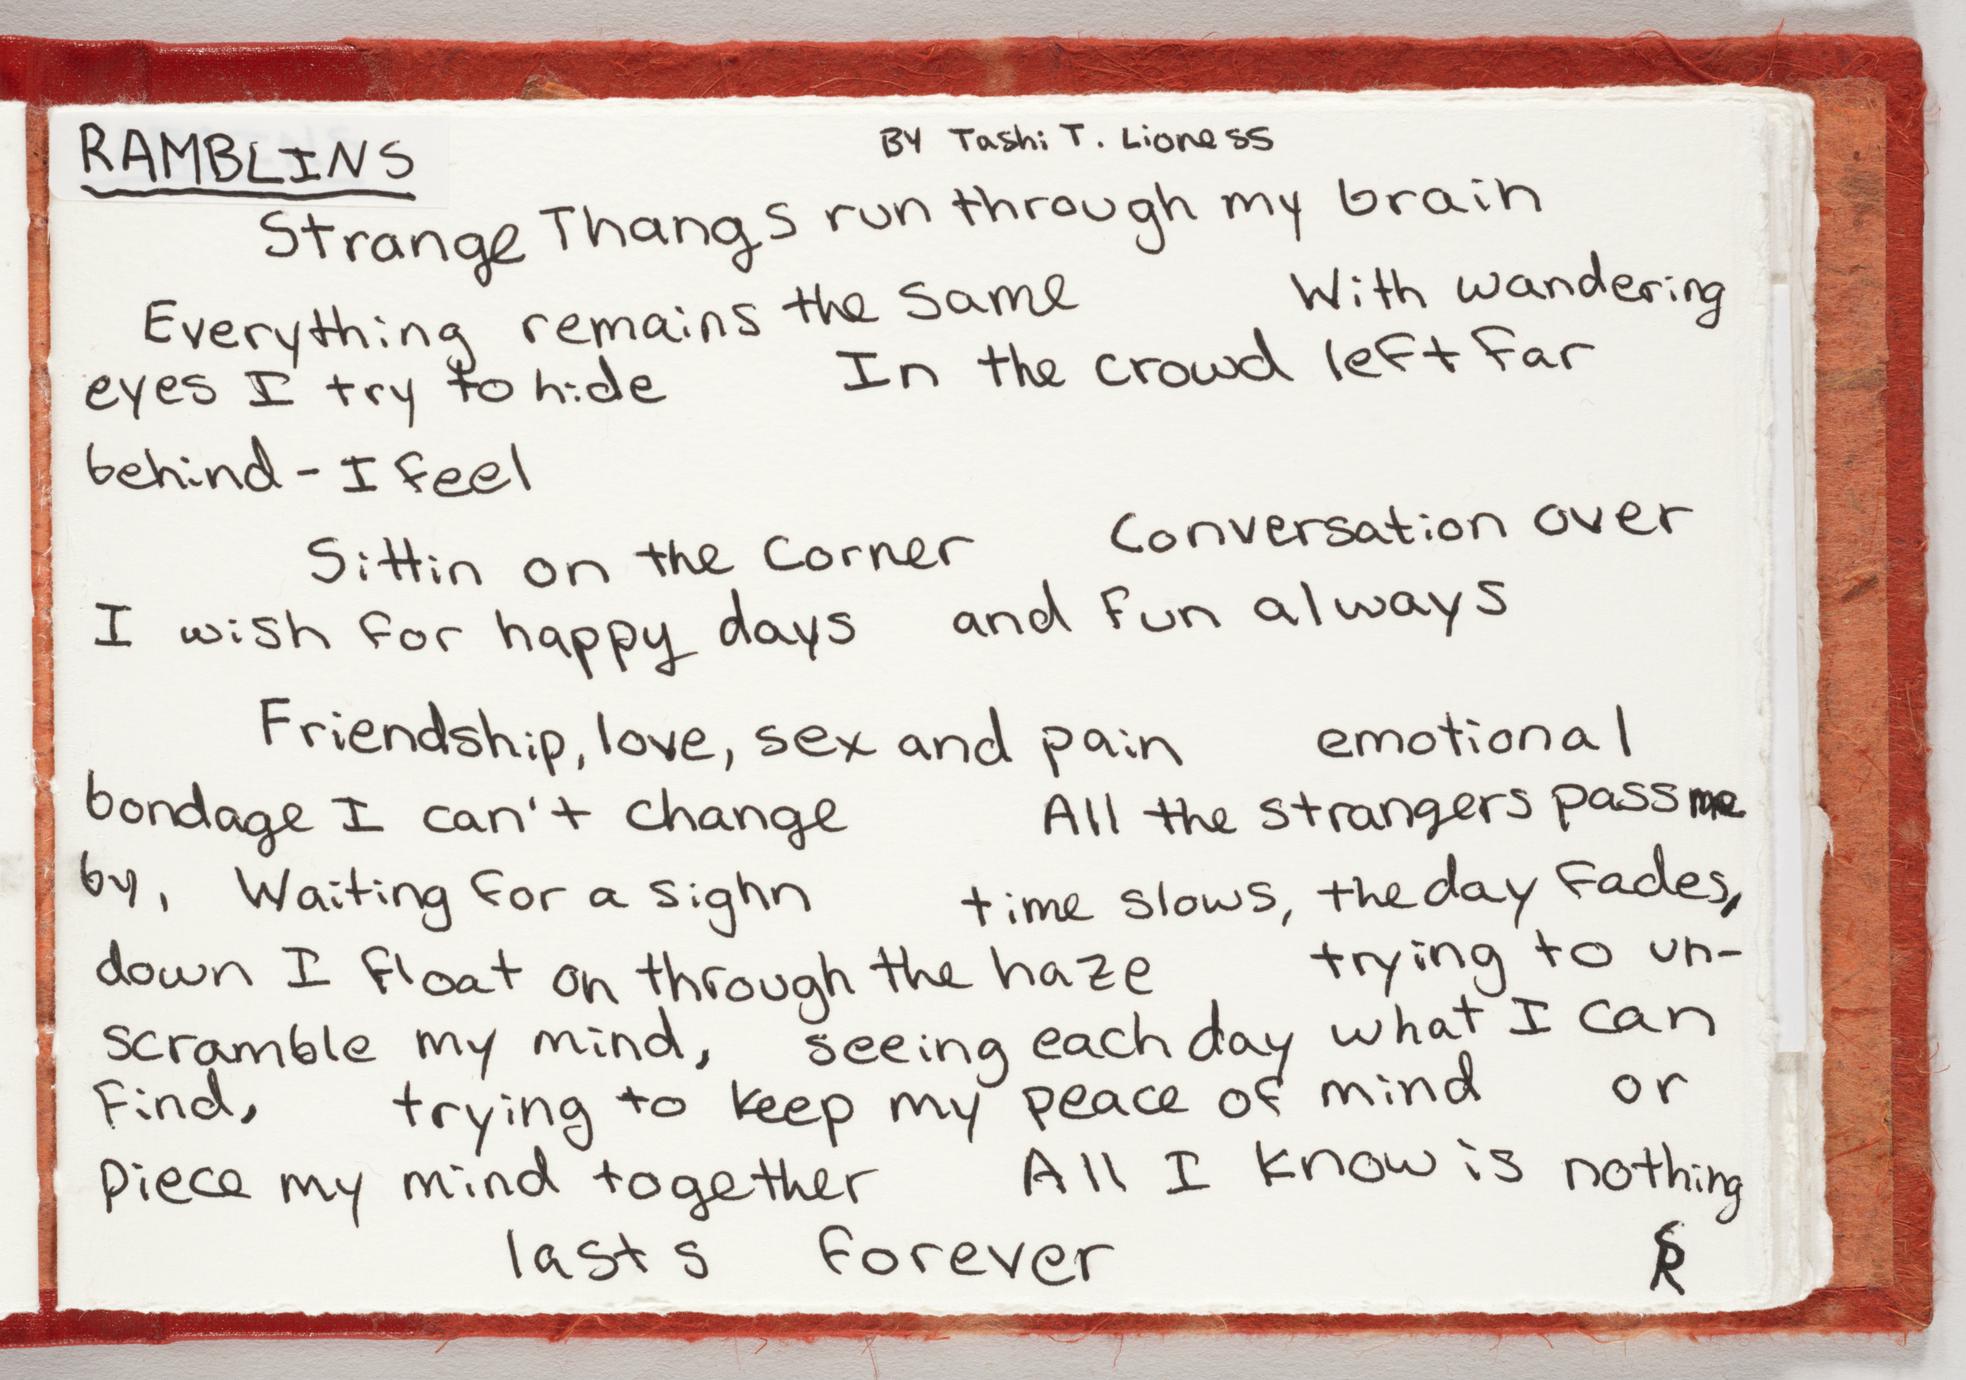 RAMBLINS
BY Tashi T. Lioness
Strange Thangs run through my brain
Everything remains the same With wandering
eyes I try to hide In the crowd left far
behind - I feel
Sittin on the Corner Conversation over
I wish for happy days and fun always
Friendship, love, sex and pain emotional
bondage I can't change All the strangers pass me
by, Waiting for a sighn time slows, the day fades,
down I float on through the haze trying to un-
scramble my mind, seeing each day what I can
find, trying to keep my peace of mind or
piece my mind together All I know is nothing
lasts forever